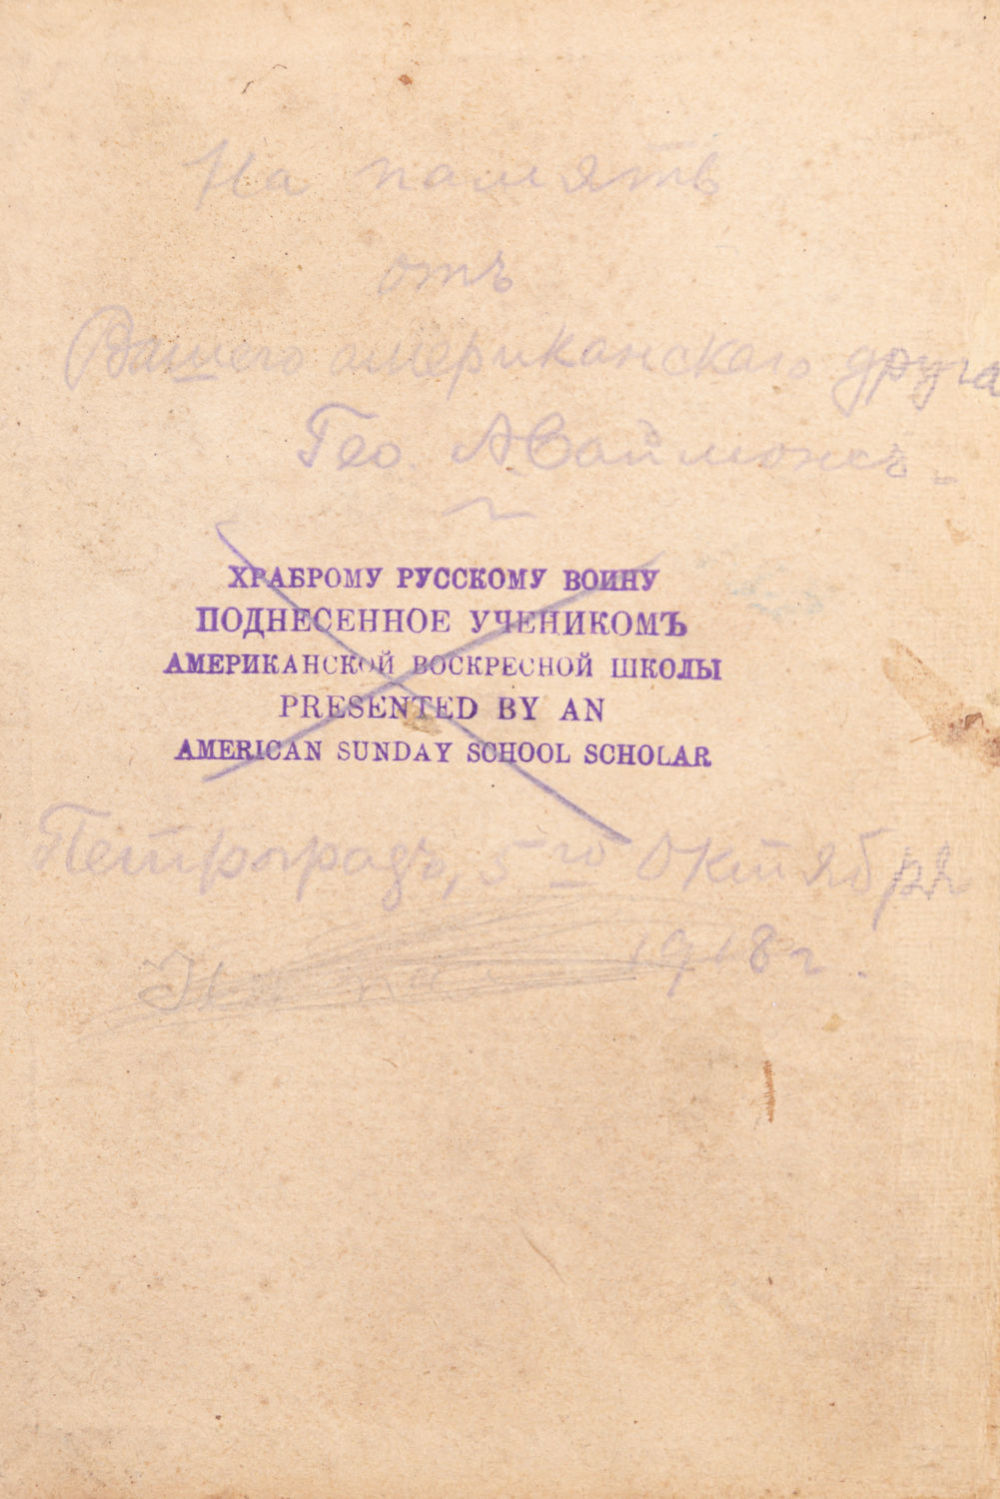 На память
отъ
Вашего американскаго друга
Гео. А
ХРАБРОМУ РУССКОМУ ВОИНУ
ПОДНЕСЕННОЕ УЧЕНИКОМЪ
АМЕРИКАНСКОЙ ВОСКРЕСНОЙ ШКОЛЫ
PRESENTED BY AN
AMERICAN SUNDAY SCHOOL SCHOLAR
Петроградъ, 5-го Октября
1918 г.